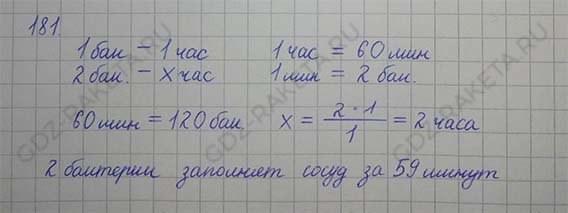 181.
1 бак – 1 час 1 час = 60 мин
2 бак. – x час 1 мин = 2 бак.
60 мин = 120 бак. x = 2 · 1 / 1 = 2 часа
2 бактерии заполняет сосуд за 59 минут
GDZ-RAKETA.RU
GDZ-RAKETA.RU
GDZ-RAKETA.RU